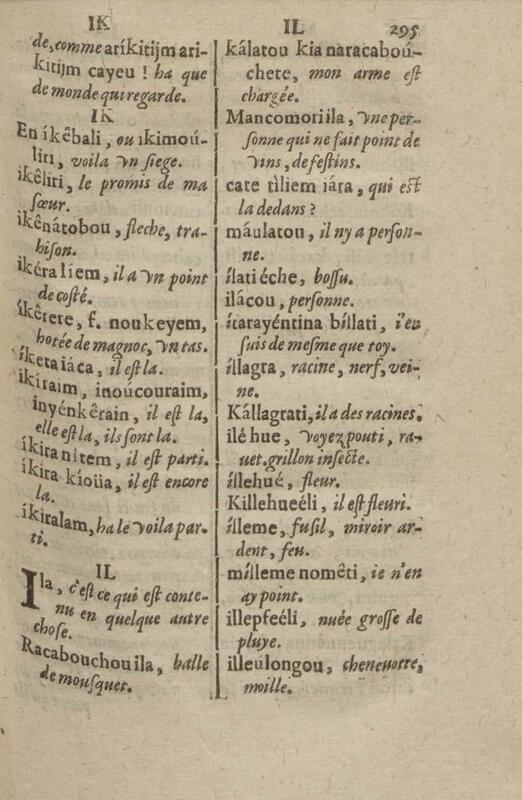 IK
IL
295
de, comme aríkitijm ari-
kitijm cayeu ! ha que
de monde qui regarde.
IK
En íkêbali, ou ikimoú-
liri, voila vn siege.
ikêliri, le promis de ma
sœur.
ikênátobou, fleche, tra-
hison.
ikéra líem, il a vn point
de costé.
ikêrete, f. noukeyem,
hotée de magnoc, vn tas.
íketaiáca, il est la.
ikíraim, inoúcouraim,
inyénkêrain, il est la,
elle est la, ils sont la.
ikira nítem, il est parti.
ikira kíoüa, il est encore
la.
íkiralam, ha le voila par-
ti.
IL
Ila, c'est ce qui est conte-
nu en quelque autre
chose.
Racabouchouila, balle
de mousquet.
kálatou kia naracaboú-
chete, mon arme est
chargée.
Mancomoriila, vne per-
sonne qui ne fait point de
vins, de festins.
cate tìliem iára, qui est
la dedans ?
máulatou, il ny a person-
ne.
ílatiéche, bossu.
ilácou, personne.
ítarayéntina bíllati, i'en
suis de mesme que toy.
íllagra, racine, nerf, vei-
ne.
Kállagrati, il a des racines.
ilé hue, voyez pouti, ra-
uet. grillon insecte.
íllehué, fleur.
Killehueéli, il est fleuri.
ílleme, fusil, miroir ar-
dent, feu.
mílleme nomêti, ie n'en
ay point.
illepfeéli, nuée grosse de
pluye.
illeúlongou, cheneuotte,
moille.